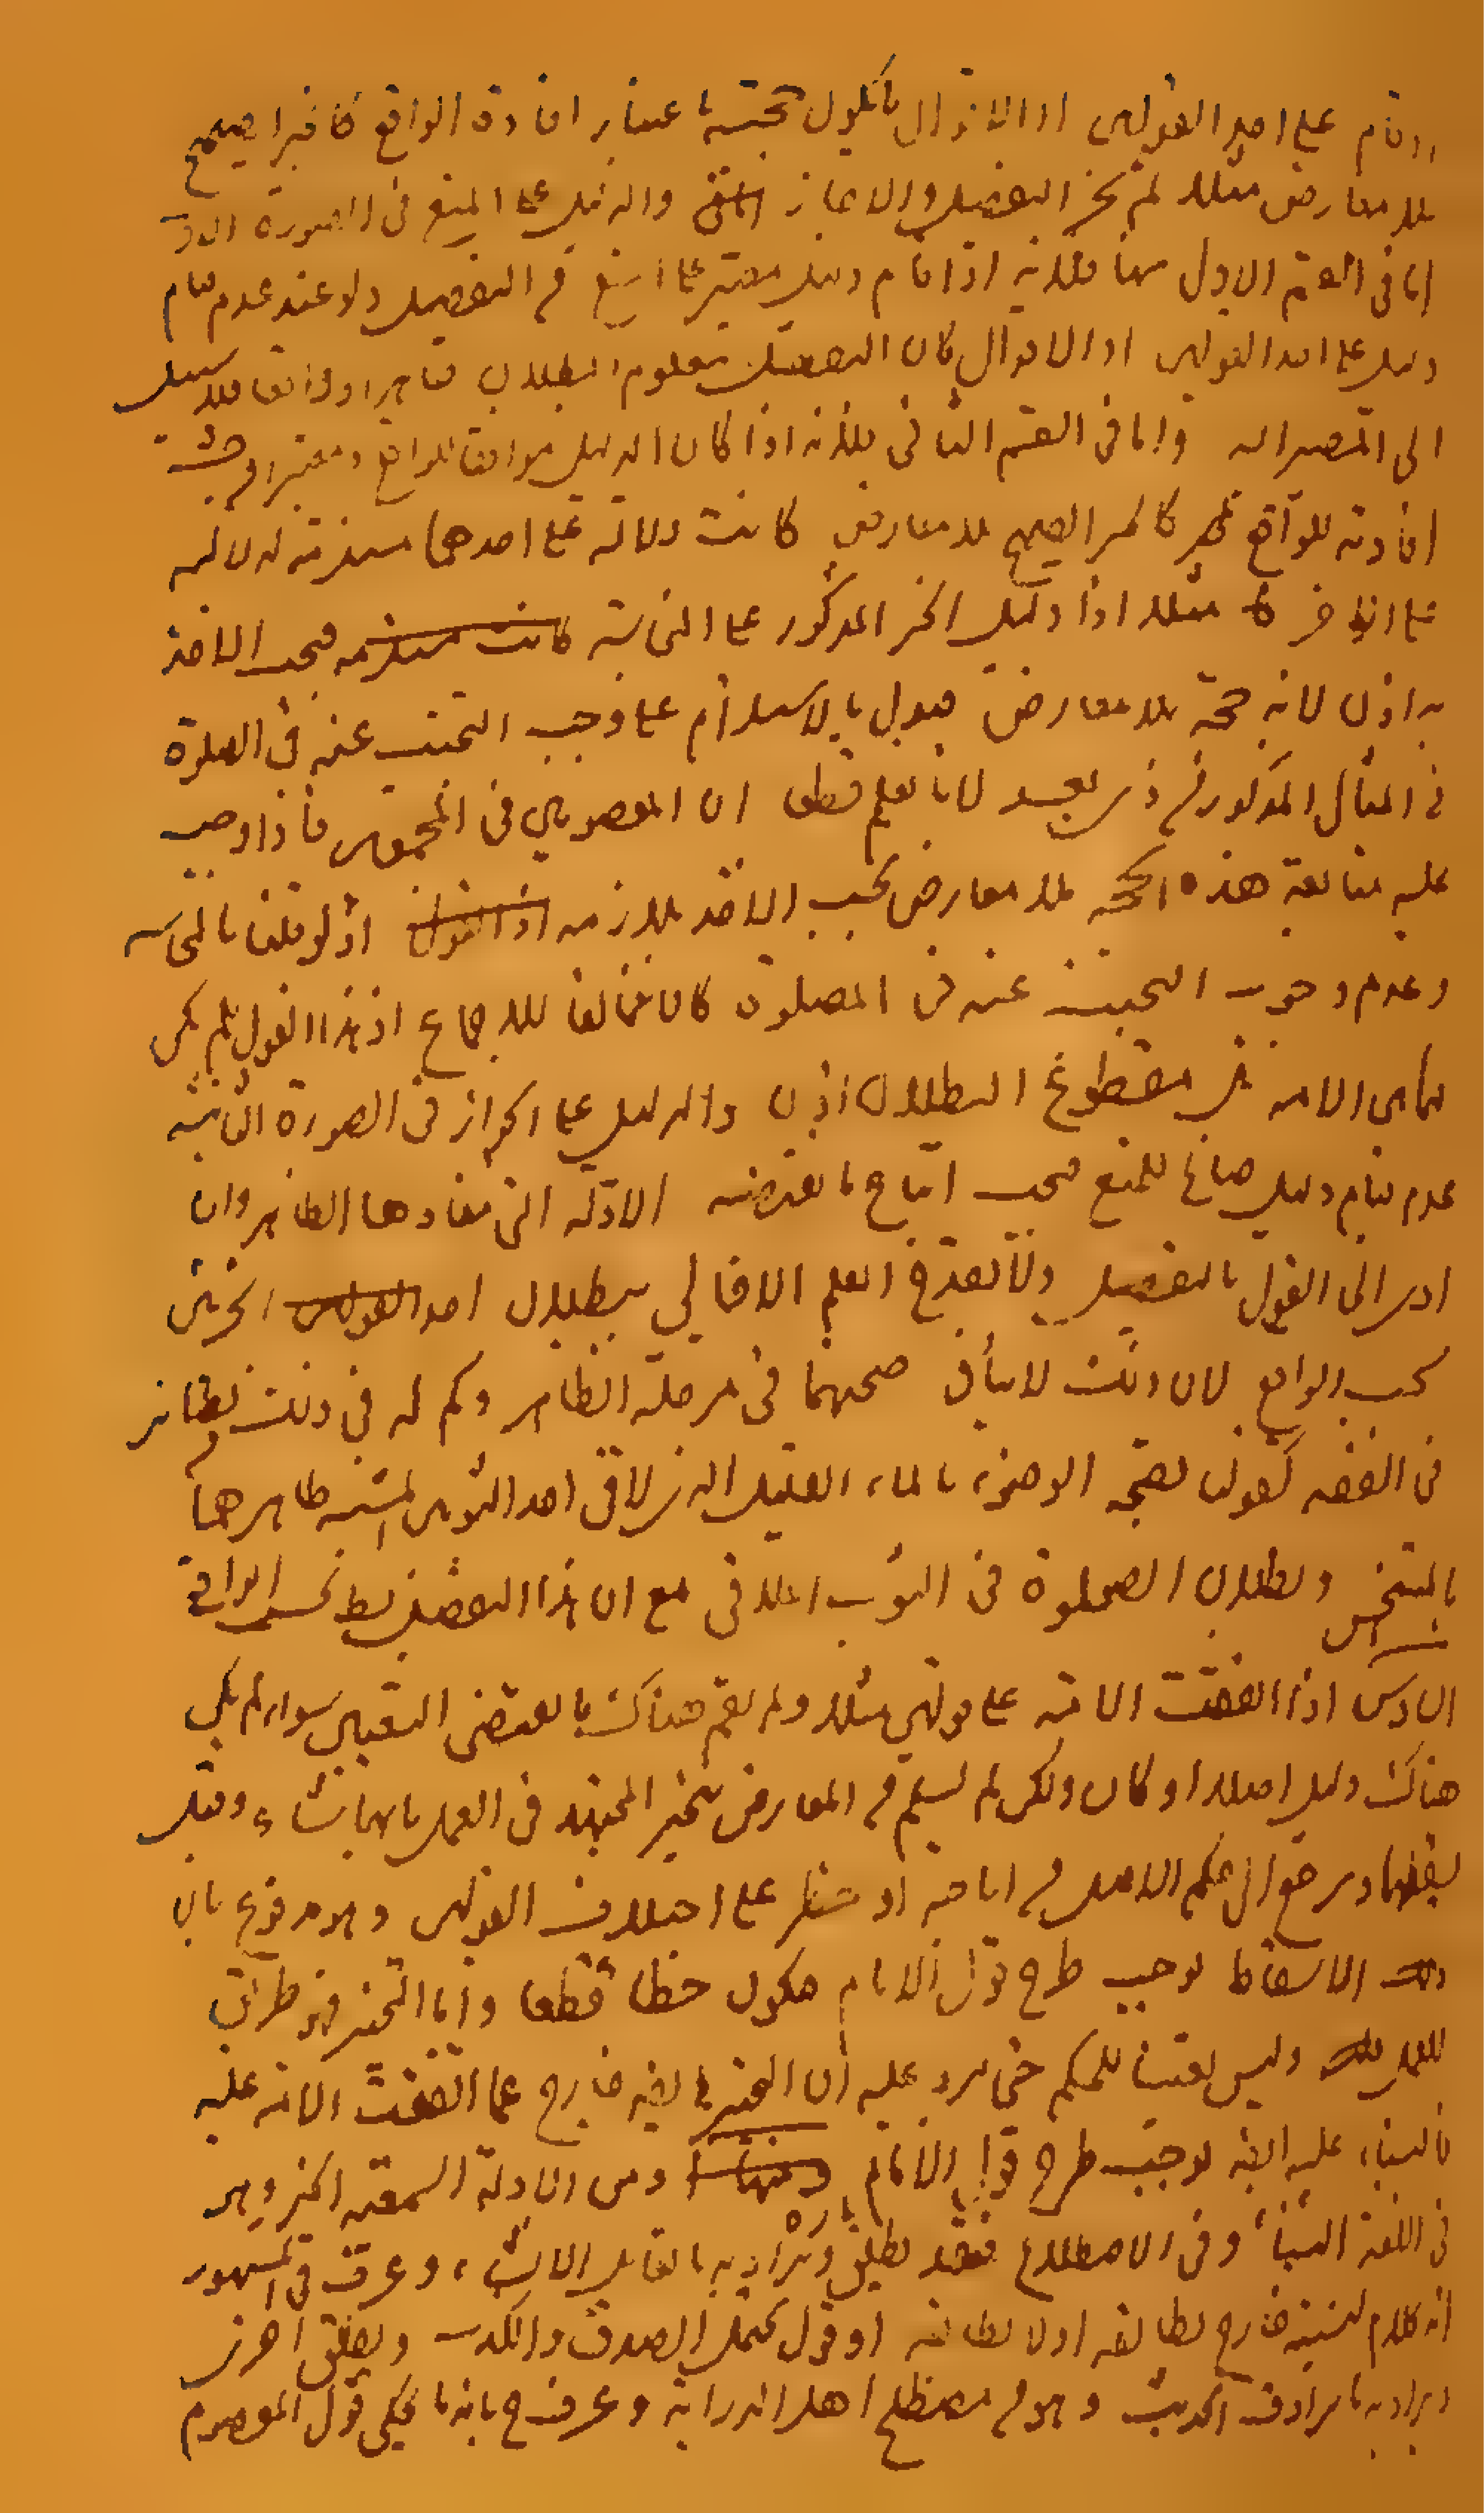 او قام على احد القولين او الاقوال ما يكون حجيته باعتبار افادة الواقع كالخبر الصحيح
بلا معارض مثلا لم يجز التفصيل والا جاز والدليل على المنع في الصورة
اما في القسم الاول منها فلانه اذا قام دليل معتبر على المنع من التفصيل ولا عند عدم قيام
دليل على احد القولين او الاقوال كان التفصيل معلوم البطلان ظاهرا وواقعا فلا سبيل
الى المصير اليه واما في القسم الثاني فلانه اذا كان الدليل موافقا للواقع ومعتبرا من حيث
افادته للواقع كالخبر الصحيح بلا معارض كانت دلالته على احدهما مستلزمة لدلالته
على الاخر مثلا اذا دل الخبر المذكور على النجاسة كانت مستلزمه فيجب الاخذ
به اذن لانه حجة بلا معارض فيدل بالاستلزام على وجوب التجنب عنه في الصلوة
في المثال المذكور لانا نعلم قطعا ان المعصوم في المجمعين فاذا وجب
عليه متابعة هذه الحجة بلا معارض يجب الاخذ بلازمه اذ القول اذ لو قلنا بالنجاسه
وعدم وجوب التجنب عنه في الصلوة كان مخالفا للاجماع اذ هذا القول لم يكن
مقطوع البطلان اذن والدليل على الجواز في الصورة الثانية
عدم قيام دليل صالح للمنع فيجب اتباع ما يقتضيه الادلة التي مفادها الظاهر وان
ادى الى القول بالتفصيل ولا يقدح العلم الاجمالي ببطلان احد القولين الجزئين
بحسب الواقع لان ذلك لا ينافي صحتهما في مرحلة الظاهر وكم له في ذلك نظائر
في الفقه كقولنا بصحة الوضوء بالماء القليل الذي لاقى احد الثوبين المشتبه طاهرهما
بالمتنجس وبطلان الصلوة في الثوب الملاقى مع ان هذا التفصيل بط بحسب الواقع
السادس اذا اتفقت الامة على قولين مثلا ولم يقم هناك ما يقتضى التعيين سواء لم يكن
هناك دليل اصلا او كان ولكن لم يسلم من المعارض تخير المجتهد في العمل بايهما شاء وقيل
يسقطهما ويرجع الى حكم الاصل من اباحة او حظر على اختلاف القولين وهو مدفوع بان
الاسقاط يوجب طرح قول الامام فيكون خطأ قطعا واما التخيير فهو طريق
للعمل وليس تعيينا للحكم حتى يرد عليه ان التخيير ايضه خارج عما اتفقت الامة عليه
فالبناء عليه ايضه يوجب طرح قول الامام ومنها ومن الادلة السمعية الخبر وهو
في اللغة النبأ وفي الاصطلاح فقد يطلق تارة ويراد به ما يقابل الانشاء وعرف في المشهور
انه كلام لنسبته خارج تطابقه او لا تطابقه او قول يحتمل الصدق والكذب ويطلق اخرى
ويراد به ما يرادف الحديث وهو في مصطلح اهل الدراية وعرف ح بانه ما يحكى قول المعصوم